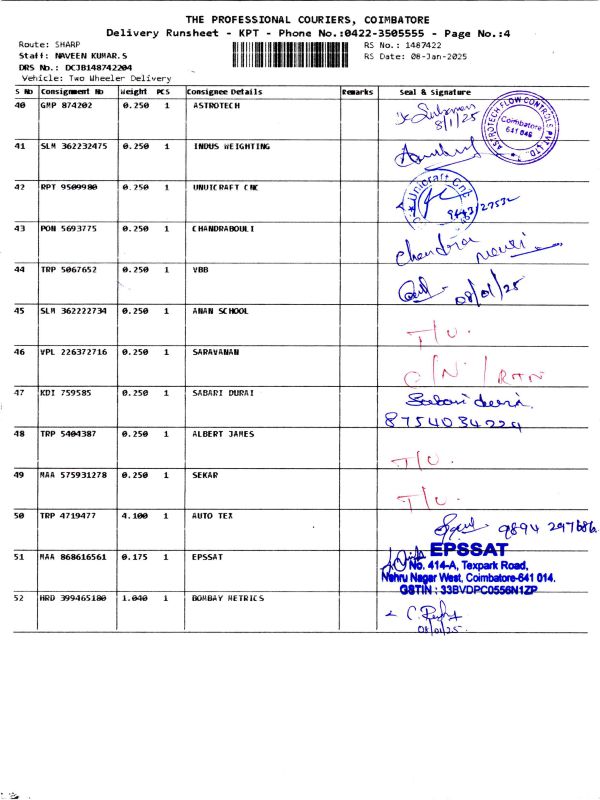 THE PROFESSIONAL COURIERS, COIMBATORE
Delivery Runsheet - KPT - Phone No.:0422-3505555 - Page No.:4
Route: SHARP RS No.: 1487422
Staff: NAVEEN KUMAR.S RS Date: 08-Jan-2025
DRS No.: DCJB148742204
Vehicle: Two Wheeler Delivery
S No Consignment No Weight PCS Consignee Details Remarks Seal & signature
40 GMP 874202 0.250 1 ASTROTECH 8/1/25 ASTROTECH FLOW CONTROLS PVT LTD. Coimbatore 641 046
41 SLM 362232475 0.250 1 INDUS WEIGHTING
42 RPT 9509980 0.250 1 UNUICRAFT CNC Unicraft Cnc
43 PON 5693775 0.250 1 CHANDRABOULI Chandra mouri
44 TRP 5067652 0.250 1 VBB 08/01/25
45 SLM 362222734 0.250 1 ANAN SCHOOL T/U.
46 VPL 226372716 0.250 1 SARAVANAN O/N / RTN
47 KDI 759585 0.250 1 SABARI DURAI Sabari durai
8754034224
48 TRP 5404387 0.250 1 ALBERT JAMES T/U.
49 MAA 575931278 0.250 1 SEKAR T/U.
50 TRP 4719477 4.100 1 AUTO TEX 9894 247686
51 MAA 868616561 0.175 1 EPSSAT EPSSAT
No. 414-A, Texpark Road,
Nehru Nagar West, Coimbatore-641 014.
GSTIN : 33BVDPC0556N1ZP
52 HRD 399465180 1.040 1 BOMBAY METRICS
08/01/25.